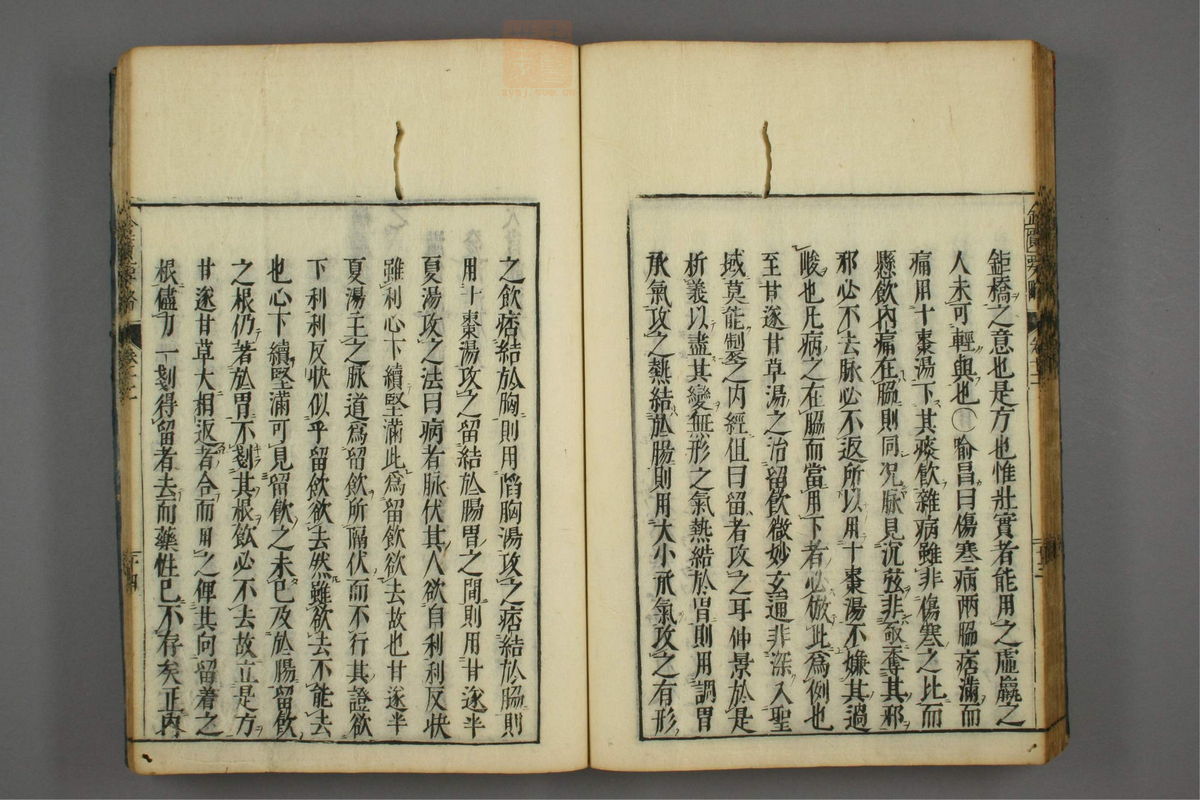 鉅橋之意也是方也惟壯實者能用之虛羸之
人未可輕與也○喻昌曰傷寒病兩脇痞滿而
痛用十棗湯下其痰飲雜病雖非傷寒之比而
懸飲內痛在脇則同况脈見沉弦非亟奪其邪
邪必不去脉必不返所以用十棗湯不嫌其過
峻也凡病之在脇而當用下者必倣此爲例也
至甘遂甘草湯之治留飲微妙玄通非深入聖
域莫能製之內經但曰留者攻之耳仲景於是
析義以盡其變無形之氣熱結於胃則用調胃
承氣攻之熱結於腸則用大小承氣攻之有形
之飲痞結於胸則用䧟胸湯攻之痞結於脇則
用十棗湯攻之留結於腸胃之間則用甘遂半
夏湯攻之法曰病者脈伏其人欲自利利反快
雖利心下續堅滿此爲留飲欲去故也甘遂半
夏湯主之脉道爲留飲所隔伏而不行其證欲
下利利反快似乎留飲欲去然雖欲去不能去
也心下續堅滿可見留飲之未已及於腸留飲
之根仍著於胃不剗其根飲必不去故立是方
甘遂甘草大相返者合而用之俾其向留着之
根儘力一剗得留者去而藥性已不存矣正內